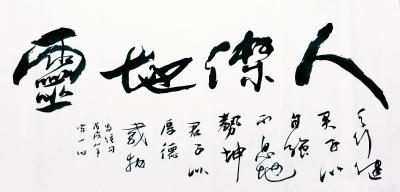 人傑地靈
天行健
君子以
自强
不息地
勢坤
君子以
厚德
載物